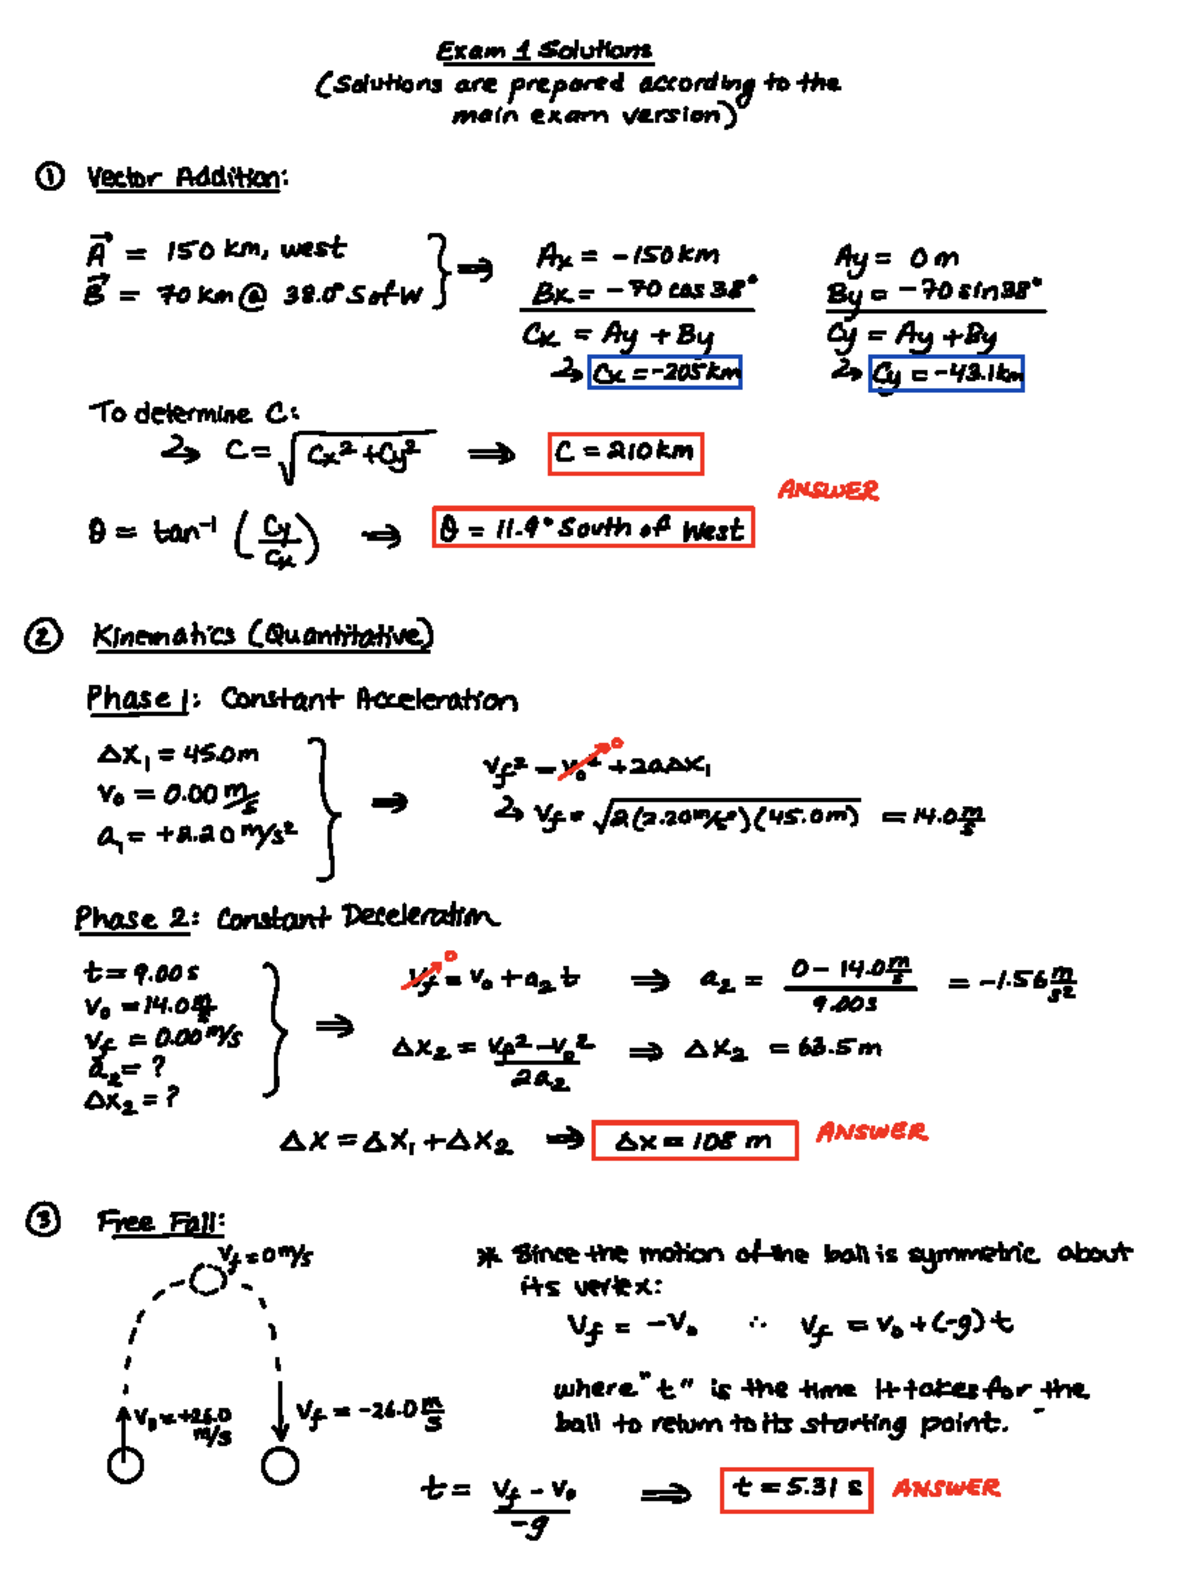 Exam 1 Solutions
(Solutions are prepared according to the
main exam version)
① Vector Addition:
A⃗ = 150 km, west
B⃗ = 70 km @ 38.0° S of W
⟹
Ax = -150 km
Bx = -70 cos 38°
Cx = Ay + By
Cx = -205 km
Ay = 0 m
By = -70 sin 38°
Cy = Ay + By
Cy = -43.1 km
To determine C:
C = √(Cx² + Cy²) ⟹ C = 210 km
ANSWER
θ = tan⁻¹ (Cy/Cx) ⟹ θ = 11.9° South of West
② Kinematics (Quantitative)
Phase 1: Constant Acceleration
Δx₁ = 45.0 m
v₀ = 0.00 m/s
a₁ = +2.20 m/s²
⟹
vf² = v₀² + 2aΔx₁
0
vf = √(2(2.20 m/s²)(45.0 m)) = 14.0 m/s
Phase 2: Constant Deceleration
t = 9.00 s
v₀ = 14.0 m/s
vf = 0.00 m/s
a₂ = ?
Δx₂ = ?
⟹
0
vf = v₀ + a₂ t ⟹ a₂ = (0 - 14.0 m/s)/9.00 s = -1.56 m/s²
Δx₂ = (vf² - v₀²)/2a₂ ⟹ Δx₂ = 63.5 m
Δx = Δx₁ + Δx₂ ⟹ Δx = 108 m ANSWER
③ Free Fall:
vf = 0 m/s
v₀ = +26.0 m/s
vf = -26.0 m/s
* Since the motion of the ball is symmetric about
its vertex:
vf = -v₀ ∴ vf = v₀ + (-g)t
where "t" is the time it takes for the
ball to return to its starting point.
t = (vf - v₀)/-g ⟹ t = 5.31 s ANSWER